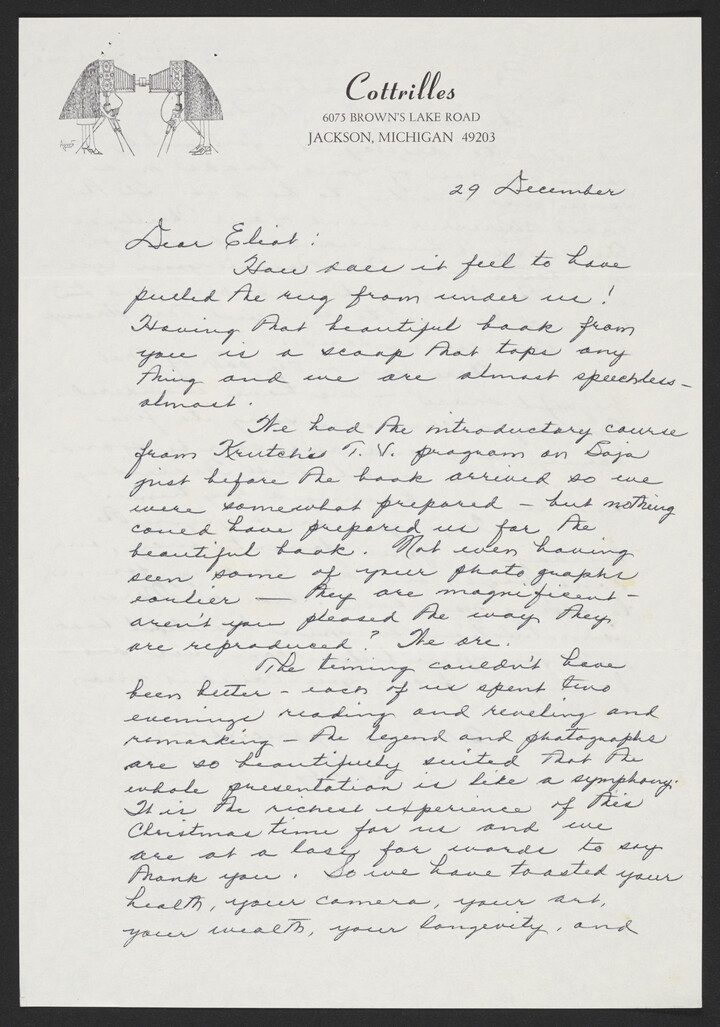 Cottrilles
6075 BROWN'S LAKE ROAD
JACKSON, MICHIGAN 49203
29 December
Dear Eliot:
How does it feel to have
pulled the rug from under us!
Having that beautiful book from
you is a scoop that tops any
thing and we are almost speechless -
almost.
We had the introductory course
from Krutch's T. V. program on Baja
just before the book arrived so we
were somewhat prepared - but nothing
could have prepared us for the
beautiful book. Not even having
seen some of your photographs
earlier — they are magnificent -
aren't you pleased the way they
are reproduced? We are.
The timing couldn't have
been better - each of us spent two
evenings reading and reveling and
remarking - the legend and photographs
are so beautifully suited that the
whole presentation is like a symphony.
It is the richest experience of this
Christmas time for us and we
are at a loss for words to say
thank you. So we have toasted your
health, your camera, your art,
your wealth, your longevity, and